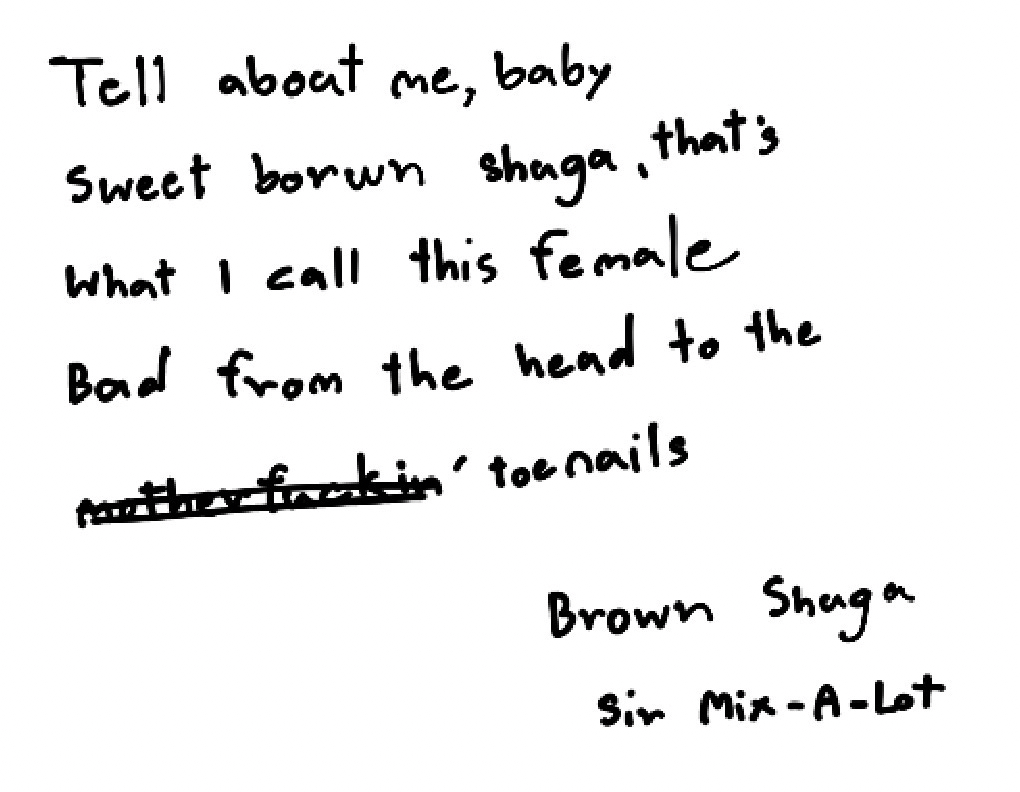 Tell about me, baby
Sweet borwn shuga, that's
what I call this female
Bad from the head to the
motherfuckin' toenails
Brown Shuga
Sir Mix-A-Lot